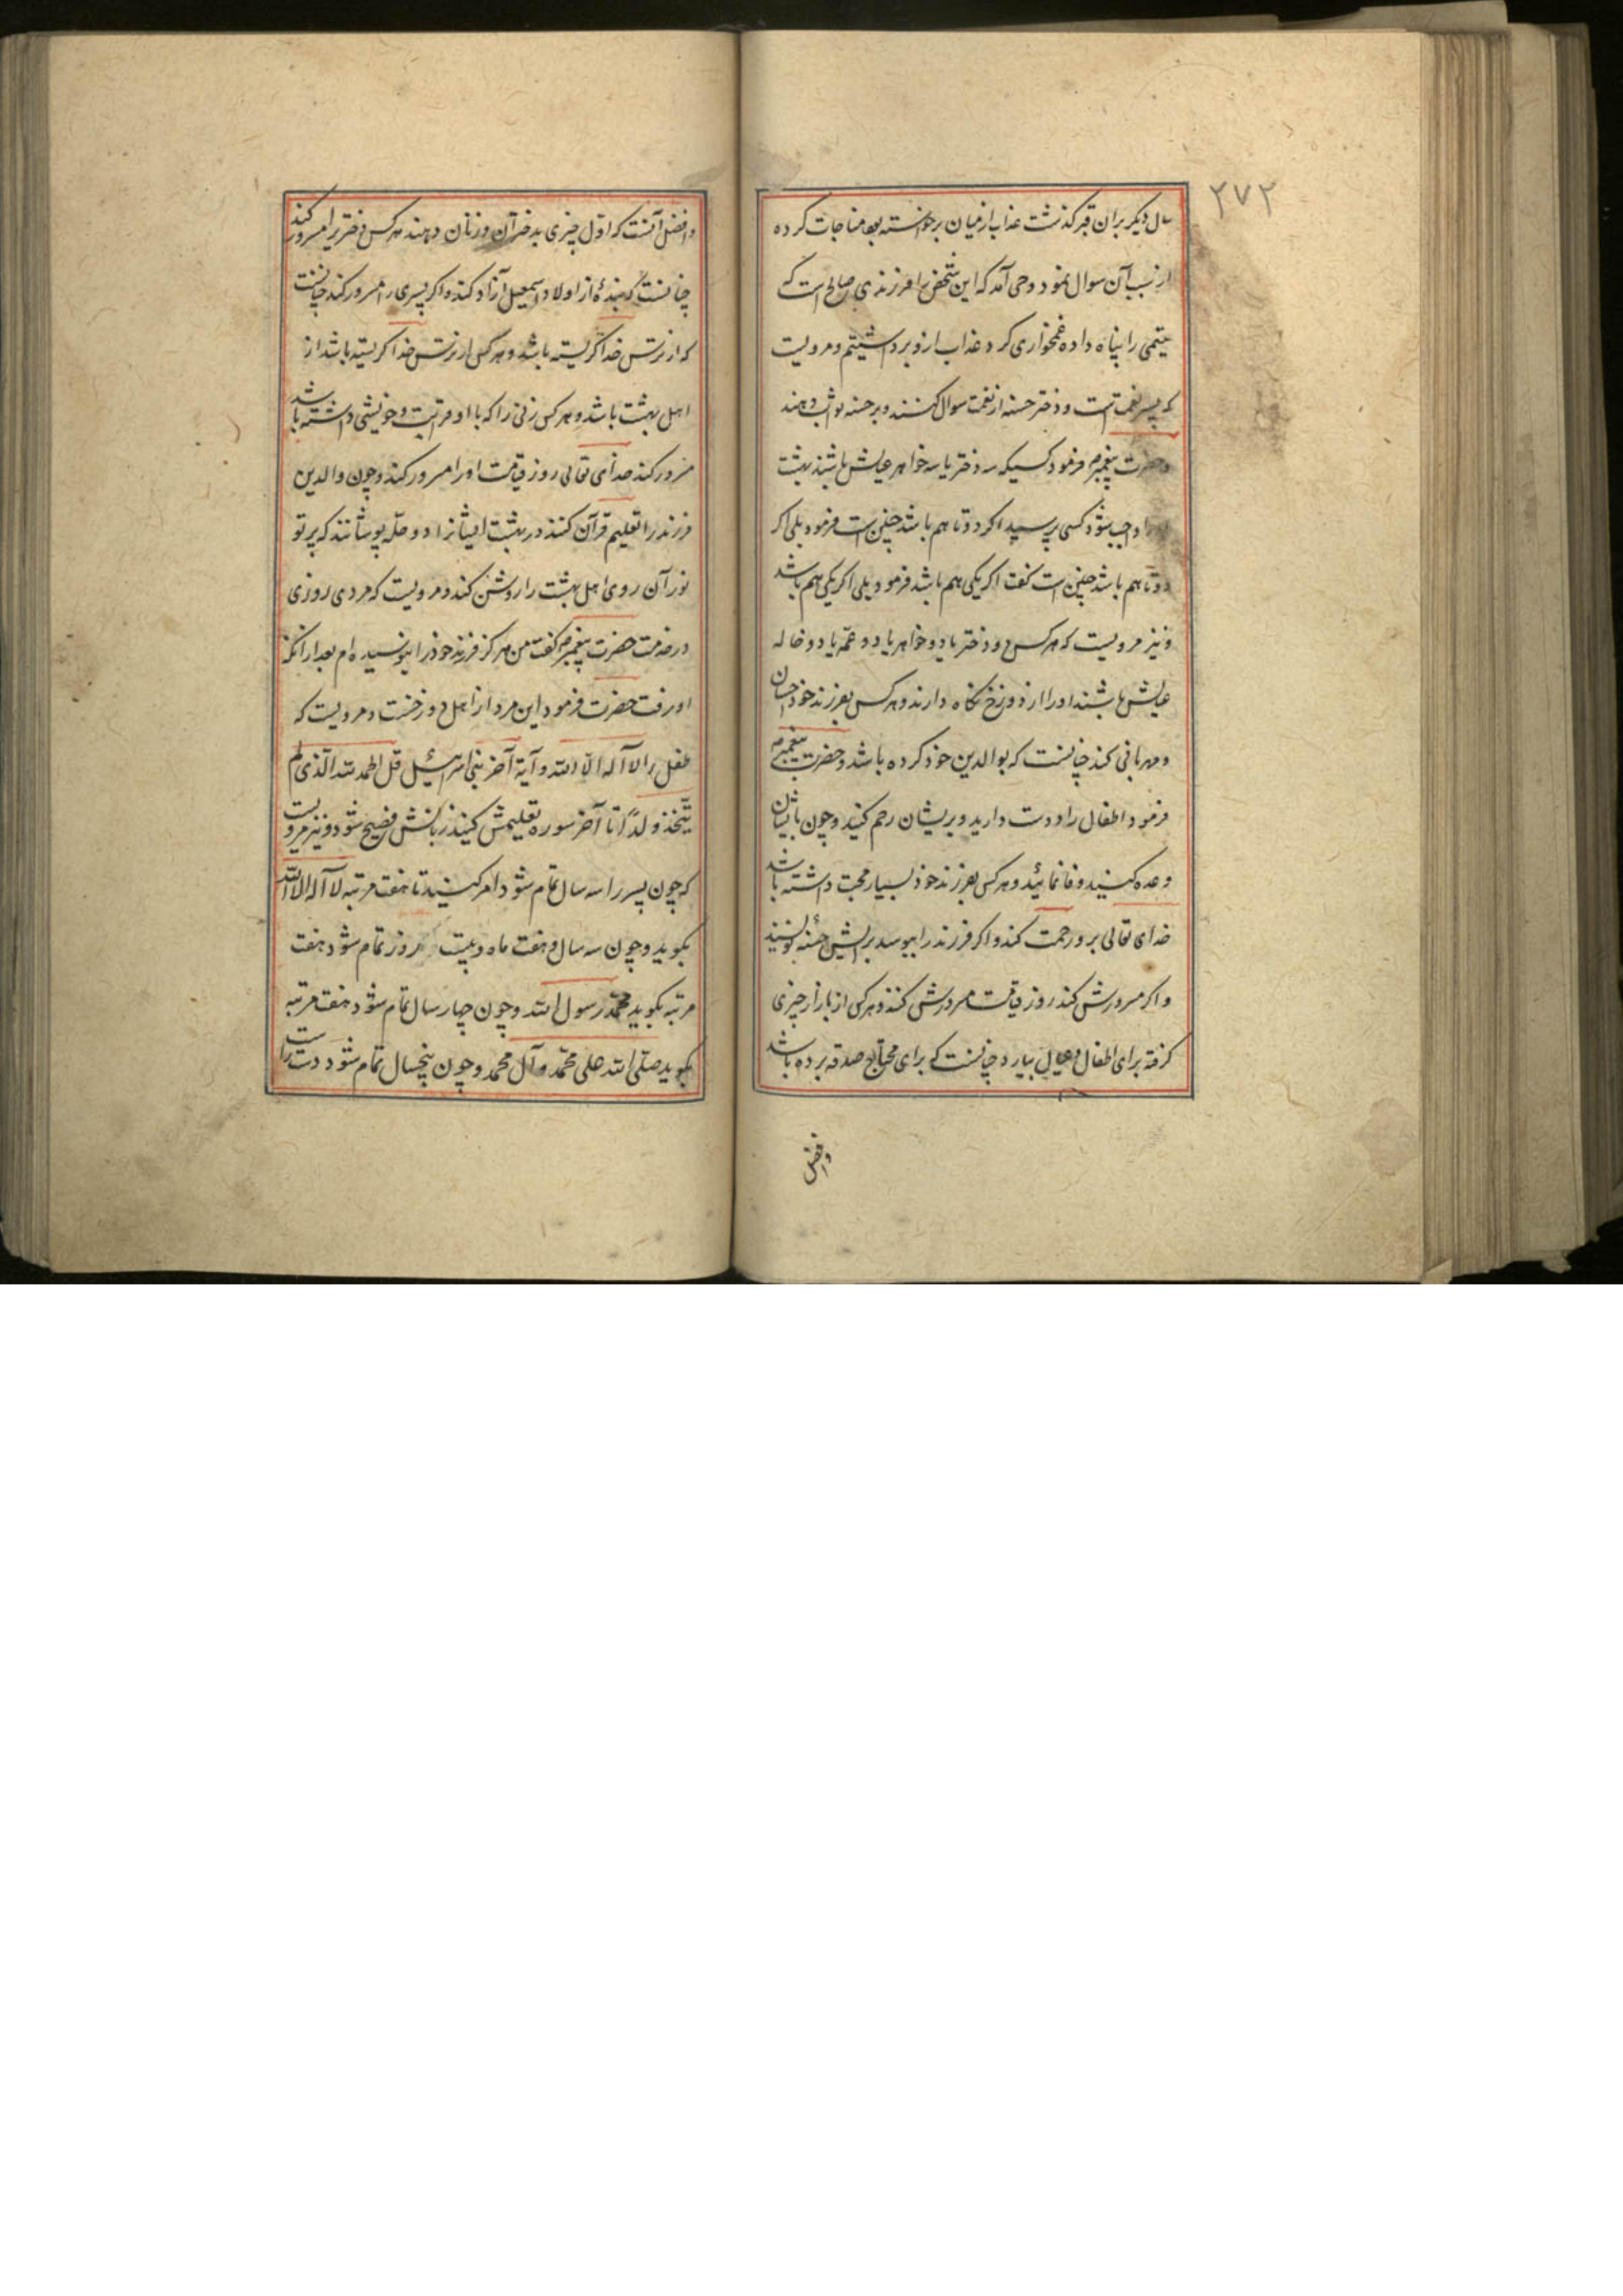 ۲۷۲
سال دیگر بران قبر گذشت عذاب از میان برخواسته بود مناجات کرده
از سبب آن سوال نمود وحی آمد که این شخص را فرزندی صالح است که
یتیمی را پناه داده غمخواری کرد عذاب ازو برداشتیم و مرویست
که پسر نعمت است و دختر حسنه از نعمت سوال کنند و بر حسنه ثواب دهند
و حضرت پیغمبر ص فرمود کسیکه سه دختر یا سه خواهر عیالش باشند بهشت
واجب شود کسی پرسید اگر دو تا هم باشد چنین است فرمود بلی اگر
دو تا هم باشد چنین است گفت اگر یکی هم باشد فرمود بلی اگر یکی هم باشد
و نیز مرویست که هر کس دو دختر یا دو خواهر یا دو عمّه یا دو خاله
عیالش باشند او را از دوزخ نگاه دارند و هر کس بفرزند خود احسان
و مهربانی کند چنانست که بوالدین خود کرده باشد و حضرت پیغمبر ص
فرمود اطفال را دوست دارید و بریشان رحم کنید و چون باایشان
وعده کنید وفا نمائید و هر کس بفرزند خود بسیار محبت داشته باشد
خدای تعالی برو رحمت کند و اگر فرزند را ببوسد برایش حسنه نویسند
و اگر مسرورش کند روز قیامت مسرورش کنند و هر کس از بازار چیزی
گرفته برای اطفال و عیال بیارد چنانست که برای محتاج صدقه برده باشد
و افضل
و افضل آنست که اوّل چیزی بدختران و زنان دهند هر کس دختر را مسرور کند
چنانست که بندهٔ از اولاد اسمعیل آزاد کند و اگر پسری را مسرور کند چنانست
که از ترس خدا گریسته باشد و هر کس از ترس خدا گریسته باشد از
اهل بهشت باشد و هر کس زنی را که با او قرابت و خویشی داشته باشد
مسرور کند خدای تعالی روز قیامت او را مسرور کند و چون والدین
فرزند را تعلیم قرآن کنند در بهشت ایشانرا دو حلّه پوشانند که پرتو
نور آن روی اهل بهشت را روشن کند و مرویست که مردی روزی
در خدمت حضرت پیغمبر ص گفت من هرگز فرزند خود را نبوسیده‌ام بعد ازانکه
او رفت حضرت فرمود این مرد از اهل دوزخست و مرویست که
طفل را لا آله الّا اللّه و آیة آخر بنی اسرائیل قل الحمد للّه الّذی لم
یتّخذ ولداً تا آخر سوره تعلیمش کنید زبانش فصیح شود و نیز مرویست
که چون پسر را سه سال تمام شود امر کنید تا هفت مرتبه لا آله الا اللّه
بگوید و چون سه سال و هفت ماه و بیست روز تمام شود هفت
مرتبه بگوید محمّد رسول اللّه و چون چهار سال تمام شود هفت مرتبه
بگوید صلّی اللّه علی محمّد و آل محمد و چون پنجسال تمام شود دست راست